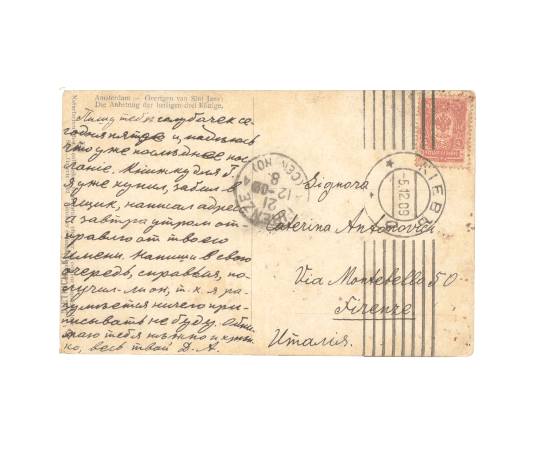 Amsterdam — Geertgen van Sint Jans:
Die Anbetung der heiligen drei Könige.
Пишу тебе голубчек се-
годня пятое и надеюсь
что уже последнее пос-
ланіе. Книжку для б.
я уже купил, забил в
ящик, написал адрес
а завтра утром от-
правлю от твоего
имени. Напиши в свою
очередь, справляя, по-
лучил ли он, т. к. я ра-
зумѣется ничего при-
писывать не буду. Обни-
маю тебя нѣжно и крѣп-
ко, весь твой Д. А.
Signora
Caterina Antonovici
Via Montebello 50
Firenze
Италія.
КІЕВЪ
-5.12.09
FIRENZE
21
12-09
8